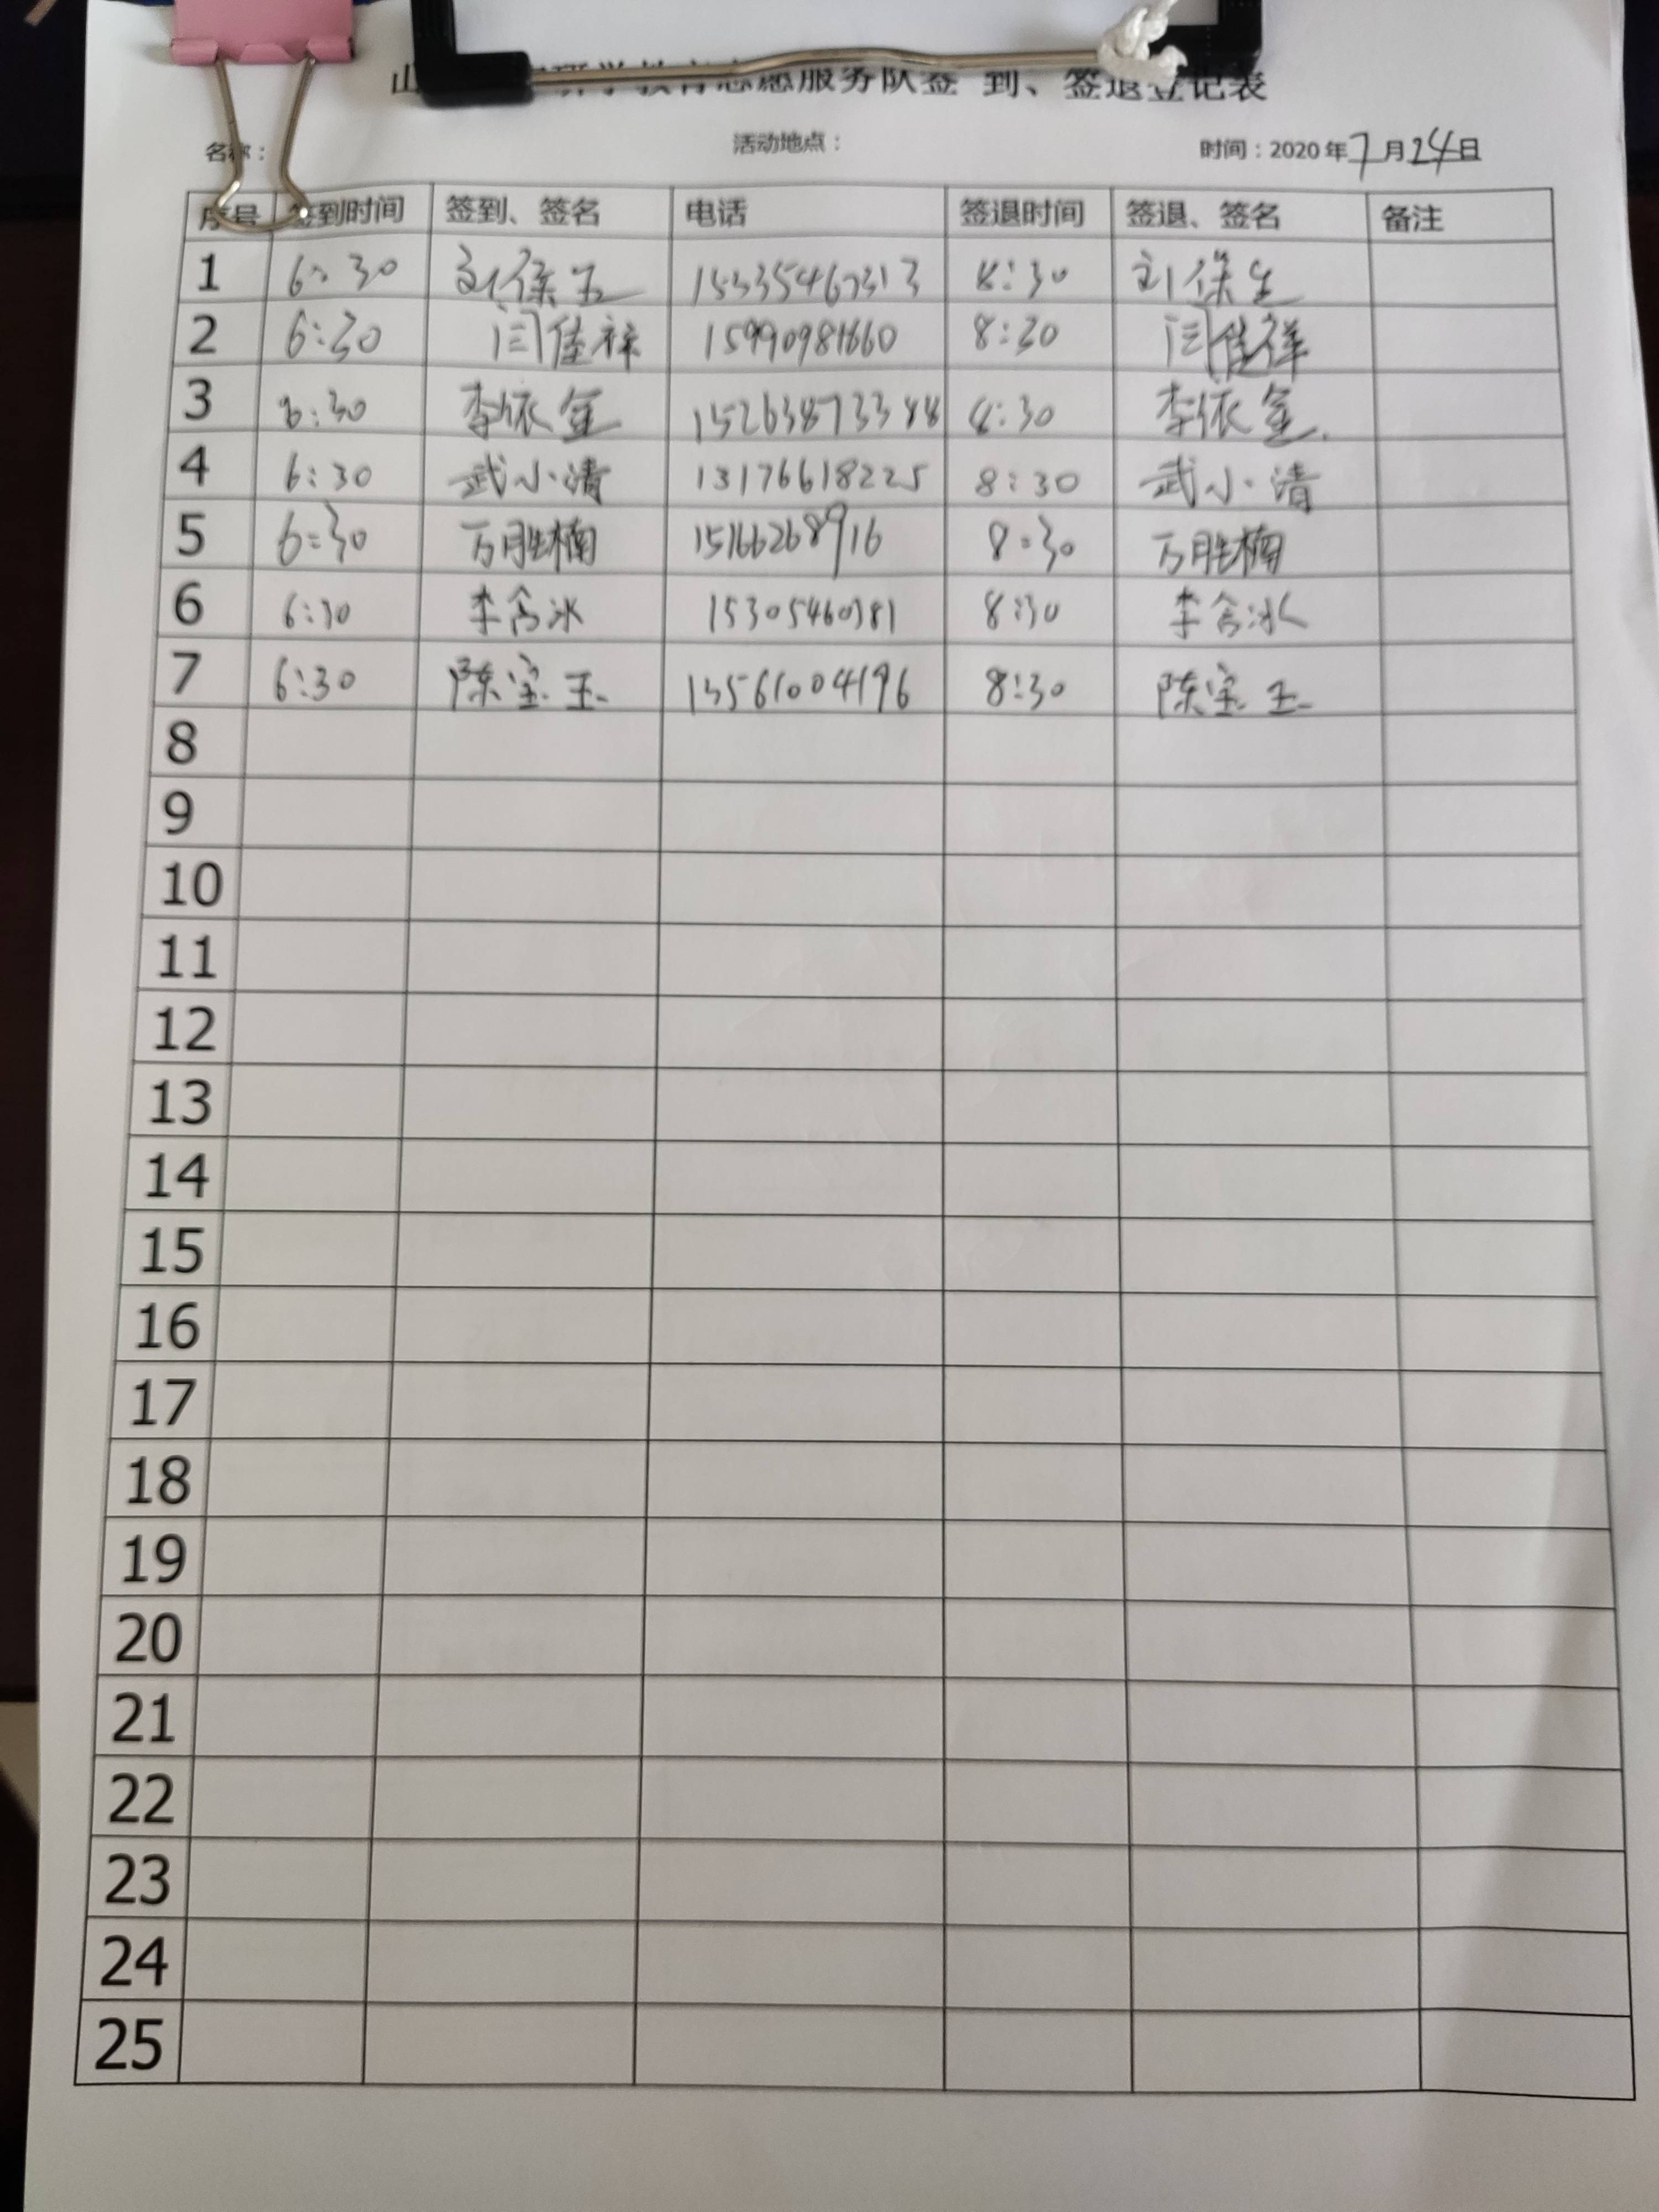 教育志愿服务队签 到、签退登记表
名称： 活动地点： 时间：2020年7月24日
序号 签到时间 签到、签名 电话 签退时间 签退、签名 备注
1 6:30 刘保玉 15335467313 8:30 刘保玉
2 6:30 闫佳祥 15990981660 8:30 闫佳祥
3 6:30 李依金 15263873388 8:30 李依金
4 6:30 武小清 13176618225 8:30 武小清
5 6:30 万胜楠 15166268916 8:30 万胜楠
6 6:30 李含冰 15305460381 8:30 李含冰
7 6:30 陈宝玉 13561004196 8:30 陈宝玉
8
9
10
11
12
13
14
15
16
17
18
19
20
21
22
23
24
25